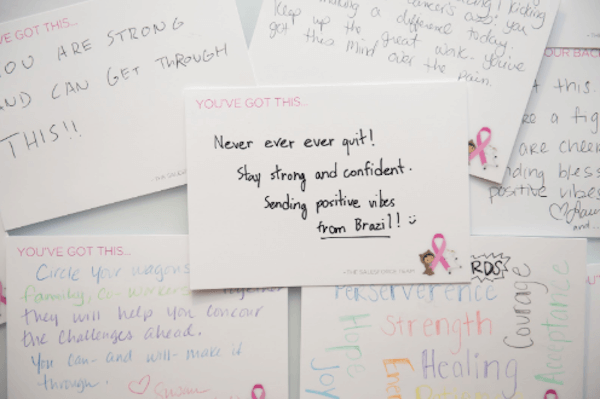 VE GOT THIS...
YOU ARE STRONG
AND CAN GET THROUGH
THIS!!
making a difference today.
Keep up the great work. You've
got this mind over the pain.
YOU'VE GOT THIS...
Never ever ever quit!
Stay strong and confident.
Sending positive vibes
from Brazil! :)
-THE SALESFORCE TEAM
OUR BAC
this.
e a fig
are cheer
nding bless
positive vibes
and...
YOU'VE GOT THIS...
Circle your wagons
family, co-workers together
they will help you concour
the challenges ahead.
You can- and will- make it
through.
RDS
Perserverence
Strength
Healing
Hope
Joy
Courage
Acceptance